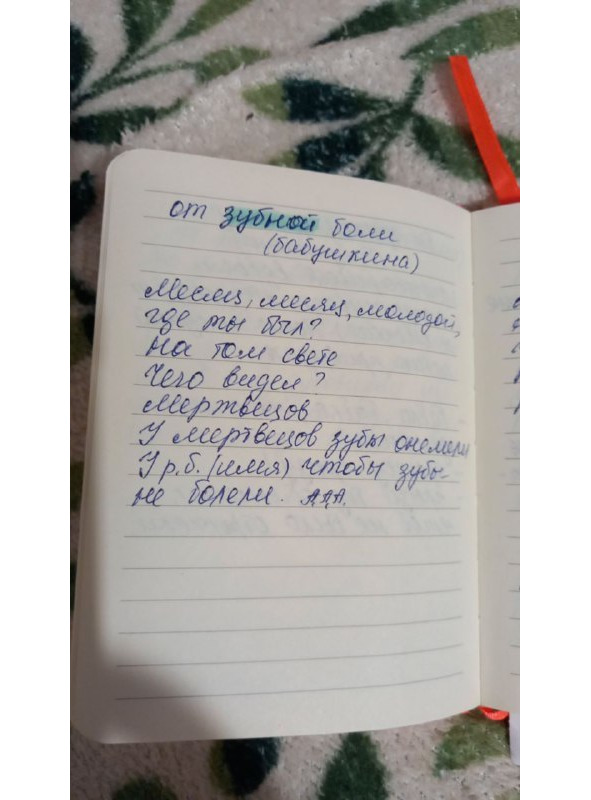 от зубной боли
(бабушкина)
Месяц, месяц, молодой,
где ты был?
На том свете
Чего видел?
Мертвецов
У мертвецов зубы онемели
У р.б. (имя) чтобы зубы-
не болели. ААА.